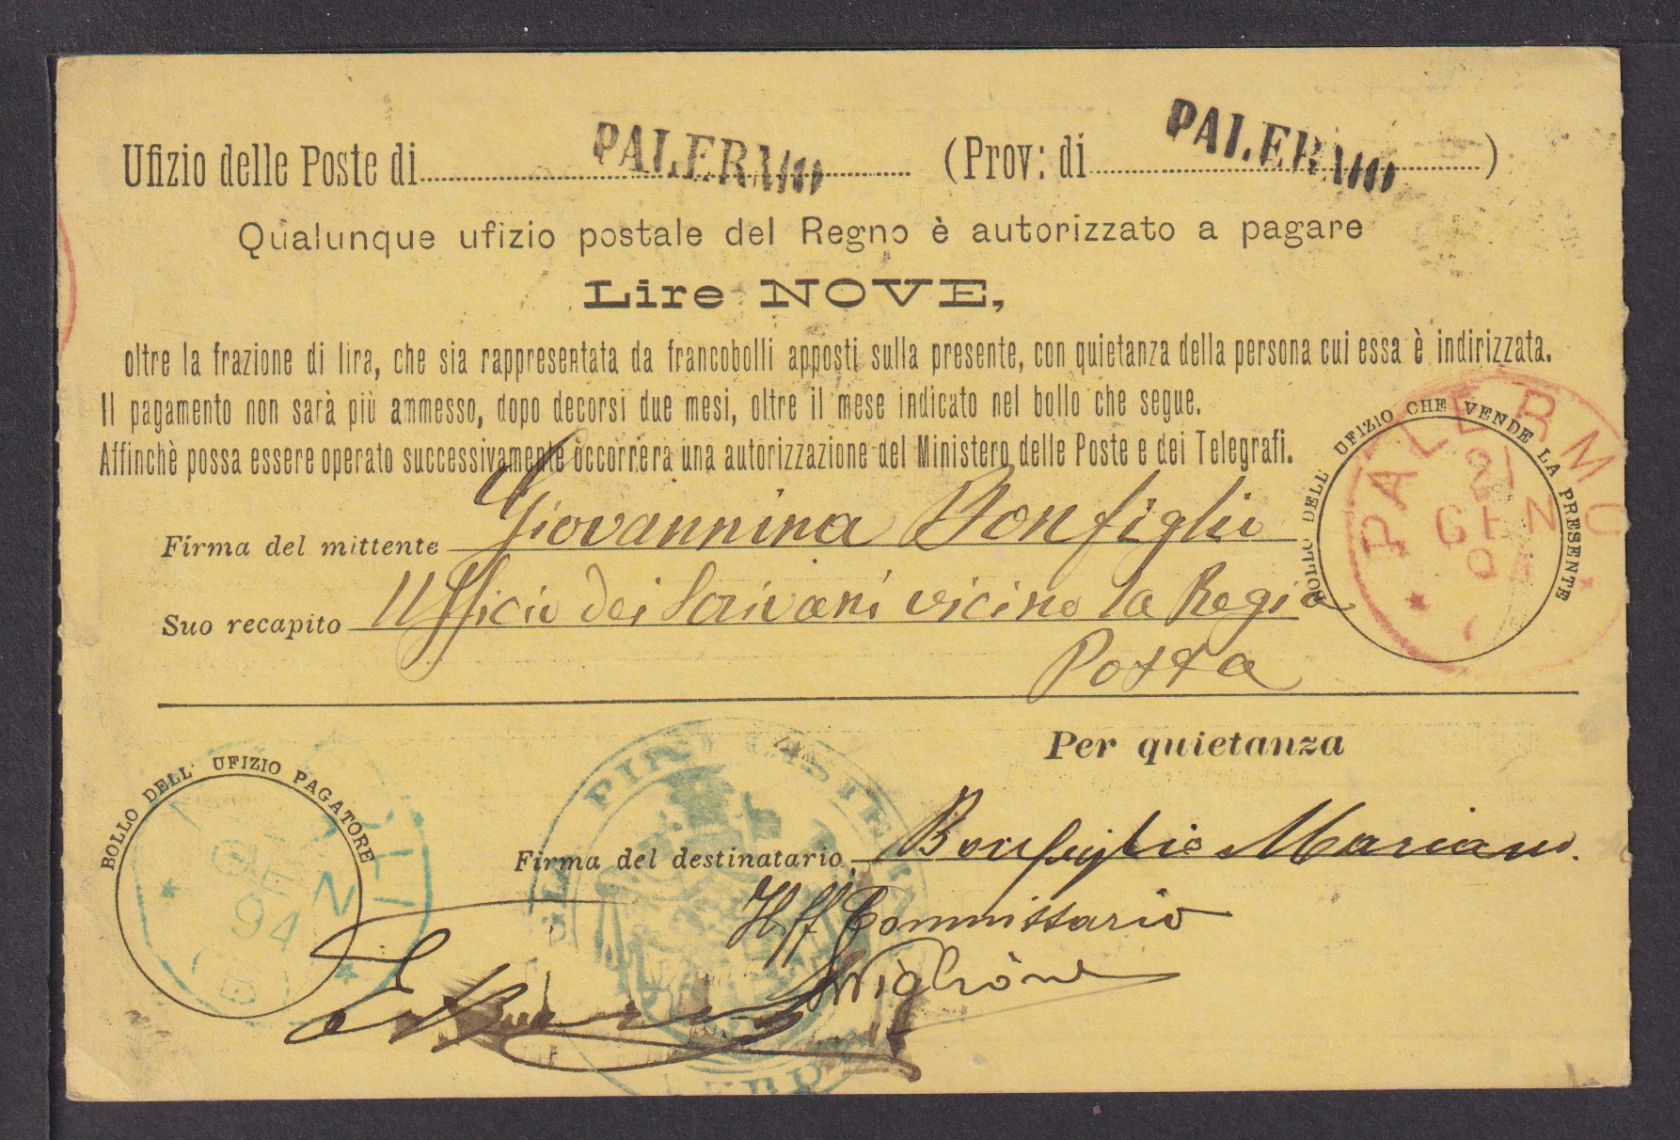 Ufizio delle Poste di PALERMO (Prov: di PALERMO)
Qualunque ufizio postale del Regno è autorizzato a pagare
Lire NOVE,
oltre la frazione di lira, che sia rappresentata da francobolli apposti sulla presente, con quietanza della persona cui essa è indirizzata.
Il pagamento non sarà più ammesso, dopo decorsi due mesi, oltre il mese indicato nel bollo che segue.
Affinchè possa essere operato successivamente occorrerà una autorizzazione del Ministero delle Poste e dei Telegrafi.
BOLLO DELL' UFIZIO CHE VENDE LA PRESENTE
PALERMO
21
GEN
Firma del mittente Giovannina Bonfiglio
Suo recapito Ufficio dei Scrivani vicino la Regia
Posta
Per quietanza
BOLLO DELL' UFIZIO PAGATORE
GEN
94
Firma del destinatario Bonfiglio Mariano.
Il ff Commissario